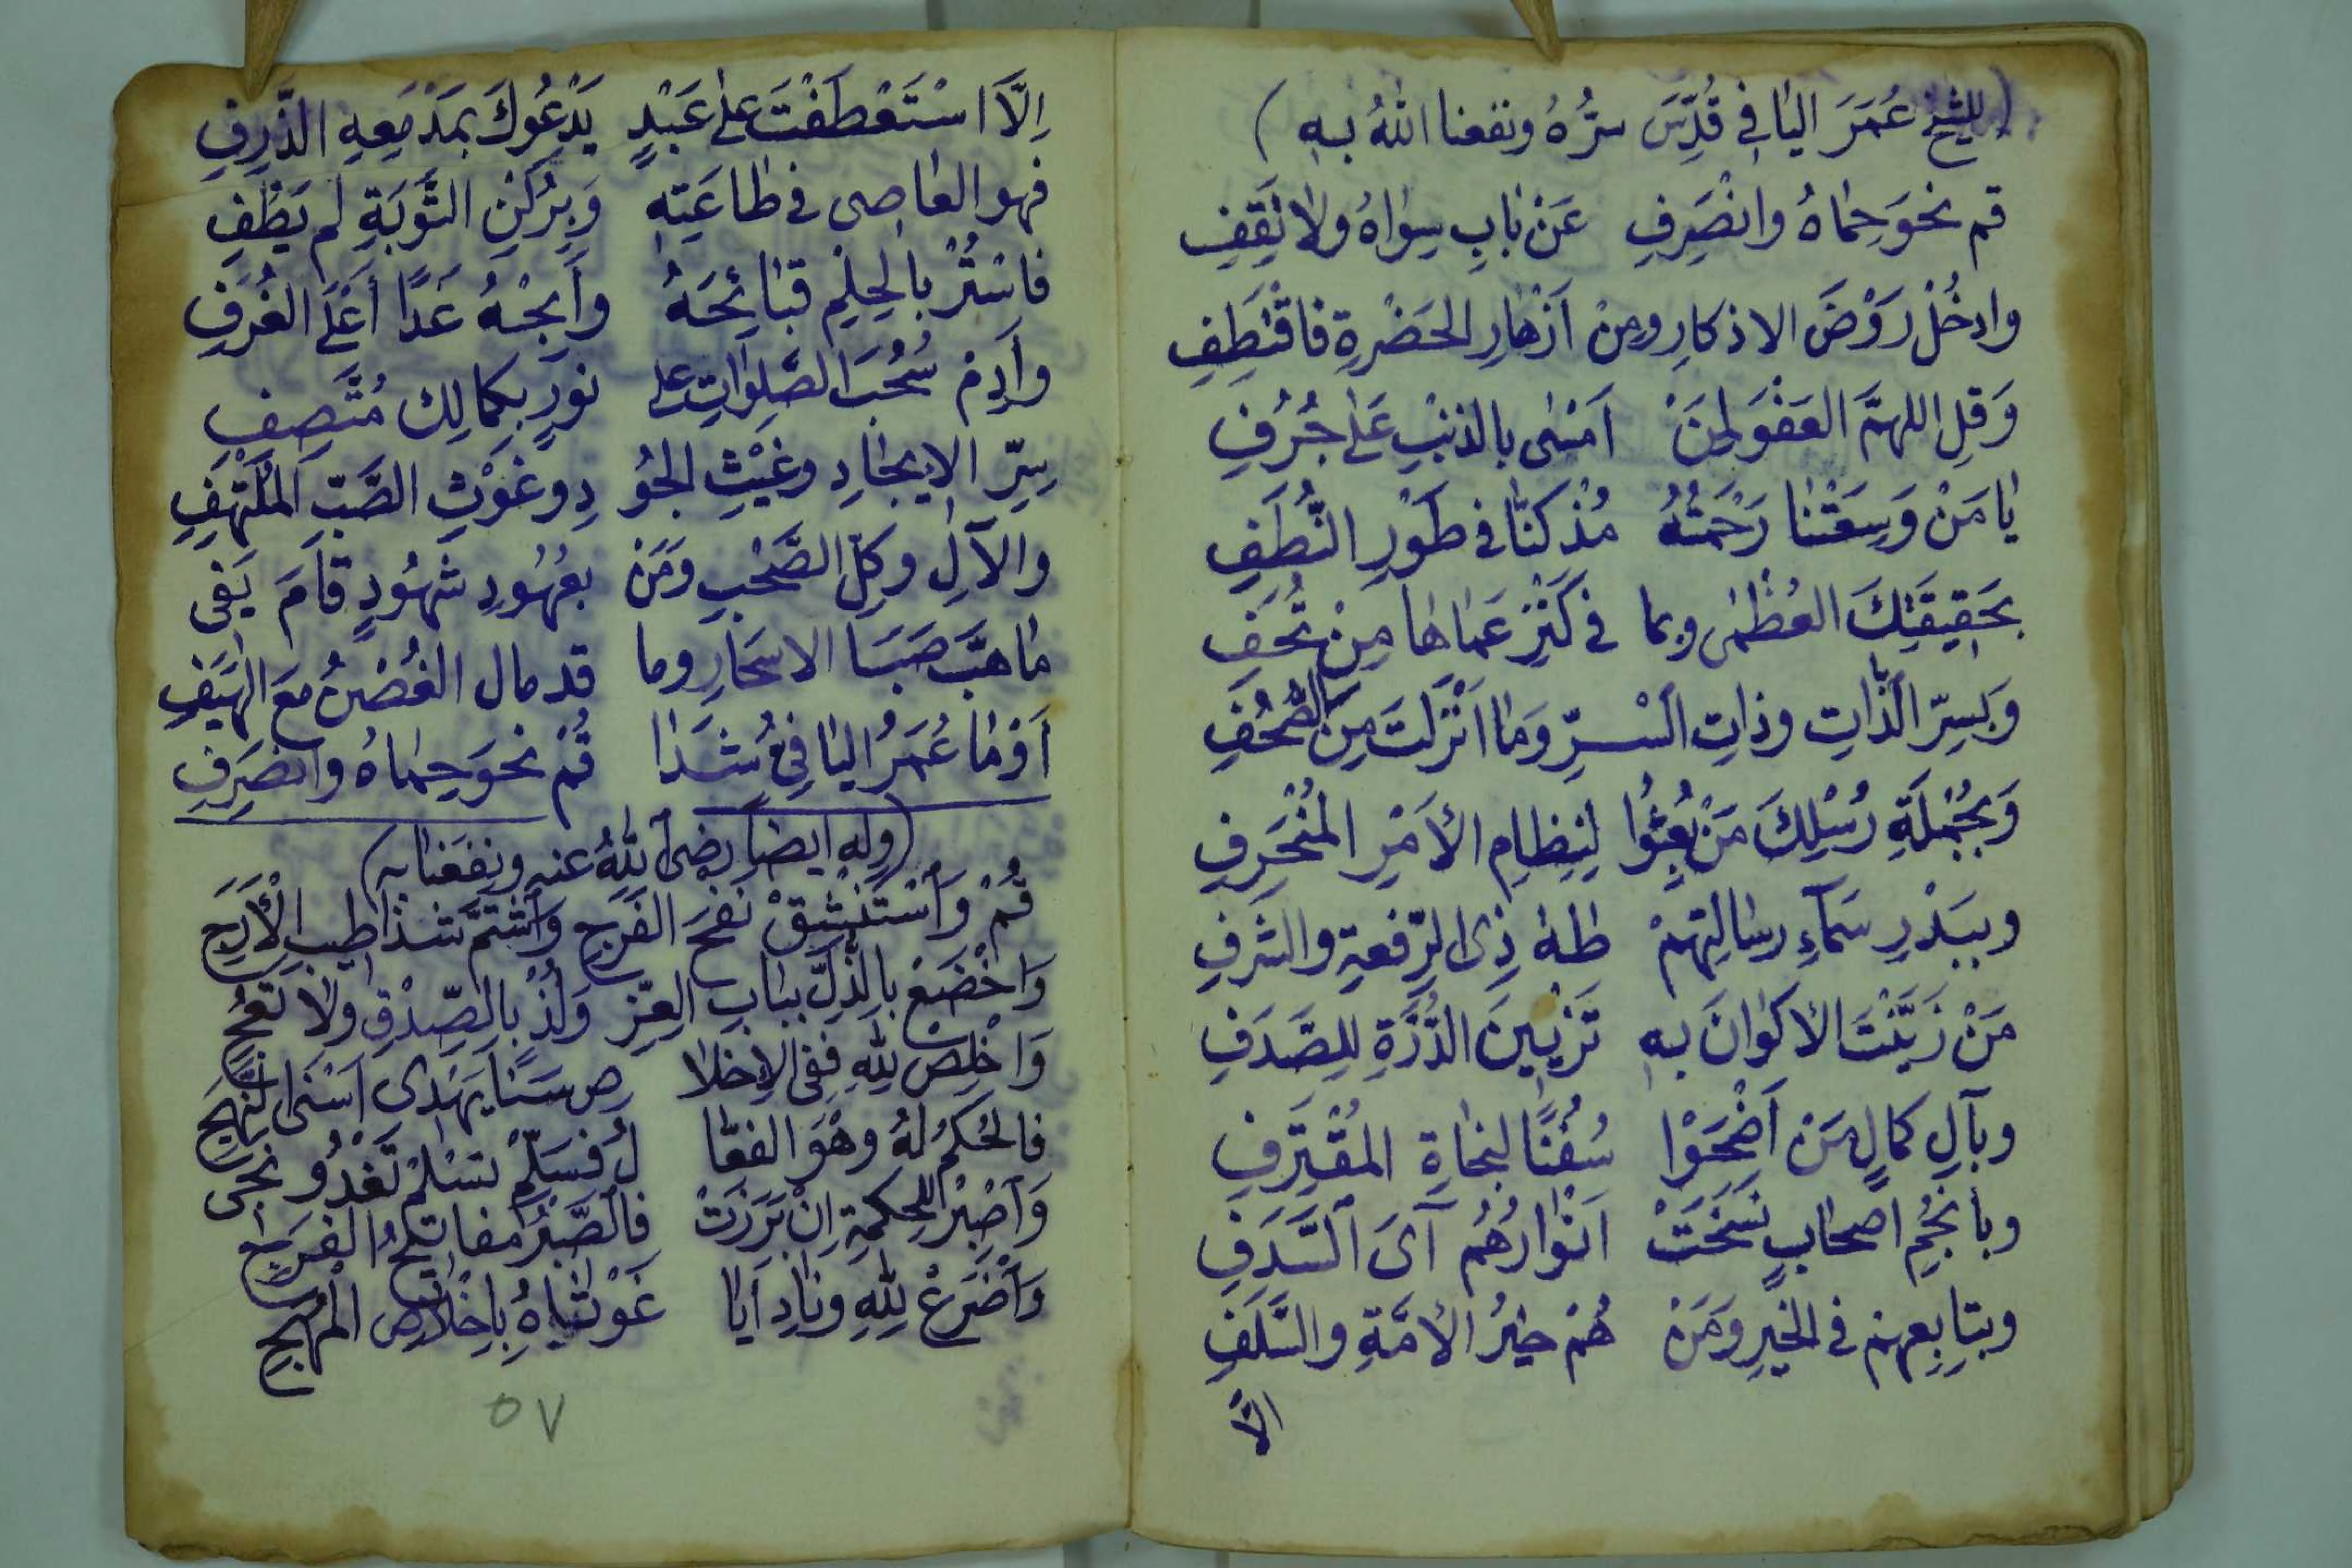 (للشيخ عُمَرَ اليافي قُدِّسَ سرُّهُ ونفعنا اللهُ به)
قم نحوَ حِماهُ وانصَرِفِ عَنْ بابِ سِواهُ ولا تَقِفِ
وادخُلْ رَوْضَ الاذكارِ ومِنْ اَزْهارِ الحَضْرةِ فاقْتَطِفِ
وَقلِ اللهمَّ العَفْوَ لِمَنْ اَمْسٰى بالذنْبِ عَلٰى جُرُفِ
يا مَنْ وَسِعَتْنا رَحْمَتُهُ مُذْ كنّا في طَوْرِ النُّطَفِ
بحَقِيقَتِكَ العُظْمٰى وبما في كَنْزِ عَماها مِنْ تُحَفِ
وَبِسِرِّ الذّاتِ وذاتِ السْرِّ وَما اَنْزلتَ مِنَ الصُّحُفِ
وَبجُمْلَةِ رُسْلِكَ مَنْ بُعِثُوا لِنِظامِ الأمْرِ المُنْحَرِفِ
وببَدْرِ سَمآءِ رسالتِهِمْ طٰهٰ ذِى الرِّفعةِ والشرَفِ
مَنْ زَيَّنْتَ الاكوانَ بهِ تَزْيِينَ الدُّرَّةِ للِصَّدَفِ
وبآلِ كمالٍ مَنْ اَضْحَوْا سُفُنًا لنجاةِ المُقْتَرِفِ
وبأنجُمِ اصحابٍ نسَخَتْ اَنْوارُهُم آىَ السَّدَفِ
وبتابِعِهم في الخيرِ ومَنْ هُمْ خيرُ الأمَّةِ والسَّلَفِ
الاّ
اِلاّ اسْتَعْطَفْتَ علٰى عَبْدٍ يَدْعُوكَ بمَدْمَعِهِ الذَّرِفِ
فهو العاصى في طاعَتِهِ وَبِرُكنِ التَّوبَةِ لم يَطُفِ
فاسْتُرْ بالحِلْمِ قبائِحَهُ وأَبِحْهُ غَدًا أعْلَى الغُرَفِ
وأدِمْ سُحُبَ الصَّلواتِ على نورٍ بكمالِك مُتَّصِفِ
سِرِّ الايجادِ وغَيْثِ الجُو دِ وغَوْثِ الصَّبِّ المُلْتَهِفِ
والآلِ وكلِّ الصَّحْبِ ومَنْ بعُهُودِ شُهُودٍ قامَ يَفِى
ما هَبَّ صَبَا الاسحَارِ وما قد مال الغُصْنُ معَ الهَيَفِ
أوْ ما عُمَرُ اليافِىُّ شَدا قُمْ نحوَ حِماهُ وانصَرِفِ
(وله ايضا رضى اللهُ عنه ونفَعَنا به)
قُمْ وَاسْتَنْشِقْ نَفْحَ الفَرَجِ وَاشْتَمَّ شذا طيبِ الْأَرَجِ
وَاخْضَعْ بالذُّلِّ ببابِ العِزِّ وَلُذْ بالصِّدْقِ ولا تَعُجِ
وَاخْلِصْ للهِ فَفِى الاِخلا صِ سَنًا يَهْدِى اَسْنَى النَّهَجِ
فالحُكمُ لهُ وهْوَ الفعّا لُ فسَلِّمْ تَسْلَمْ تَغْدُو نجى
وَاصْبِرْ للحِكمةِ اِنْ بَرَزَتْ فالصَّبْرُ مفاتيحُ الفرَجِ
وَاضْرَعْ للهِ ونادِ أيا غَوْثاهُ بِاِخْلاصِ المُهَجِ
٥٧